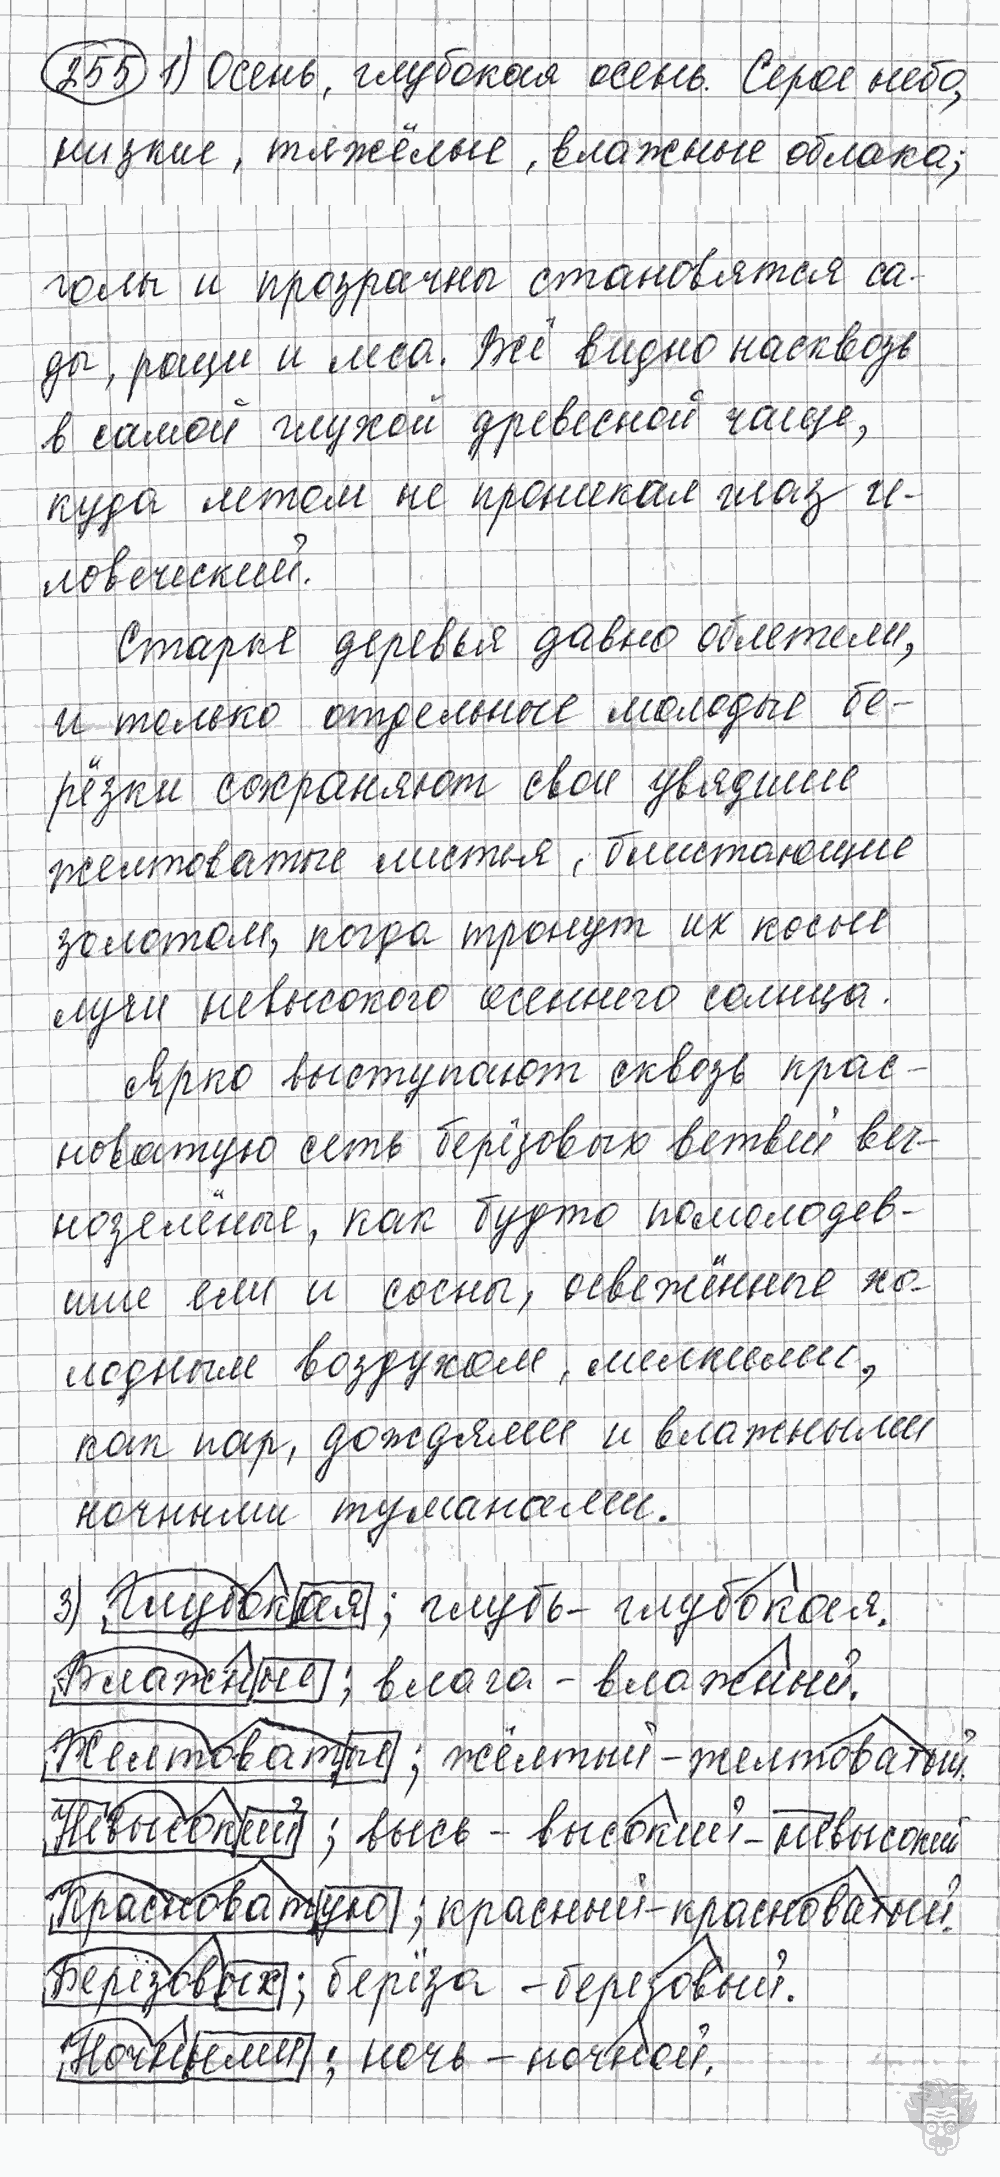 255 1) Осень, глубокая осень. Серое небо,
низкие, тяжёлые, влажные облака;
голы и прозрачны становятся са-
ды, рощи и леса. Всё видно насквозь
в самой глухой древесной чаще,
куда летом не проникал глаз че-
ловеческий.
Старые деревья давно облетели,
и только отдельные молодые бе-
рёзки сохраняют свои увядшие
желтоватые листья, блистающие
золотом, когда тронут их косые
лучи невысокого осеннего солнца.
Ярко выступают сквозь крас-
новатую сеть берёзовых ветвей веч-
нозелёные, как будто помолодев-
шие ели и сосны, освежённые хо-
лодным воздухом, мелкими,
как пар, дождями и влажными
ночными туманами.
3) Глубокая; глубь – глубокая.
Влажные; влага – влажный.
Желтоватые; жёлтый – желтоватый.
Невысокий; высь – высокий – невысокий
Красноватую; красный – красноватый.
Берёзовых; берёза – березовый.
Ночными; ночь – ночной.